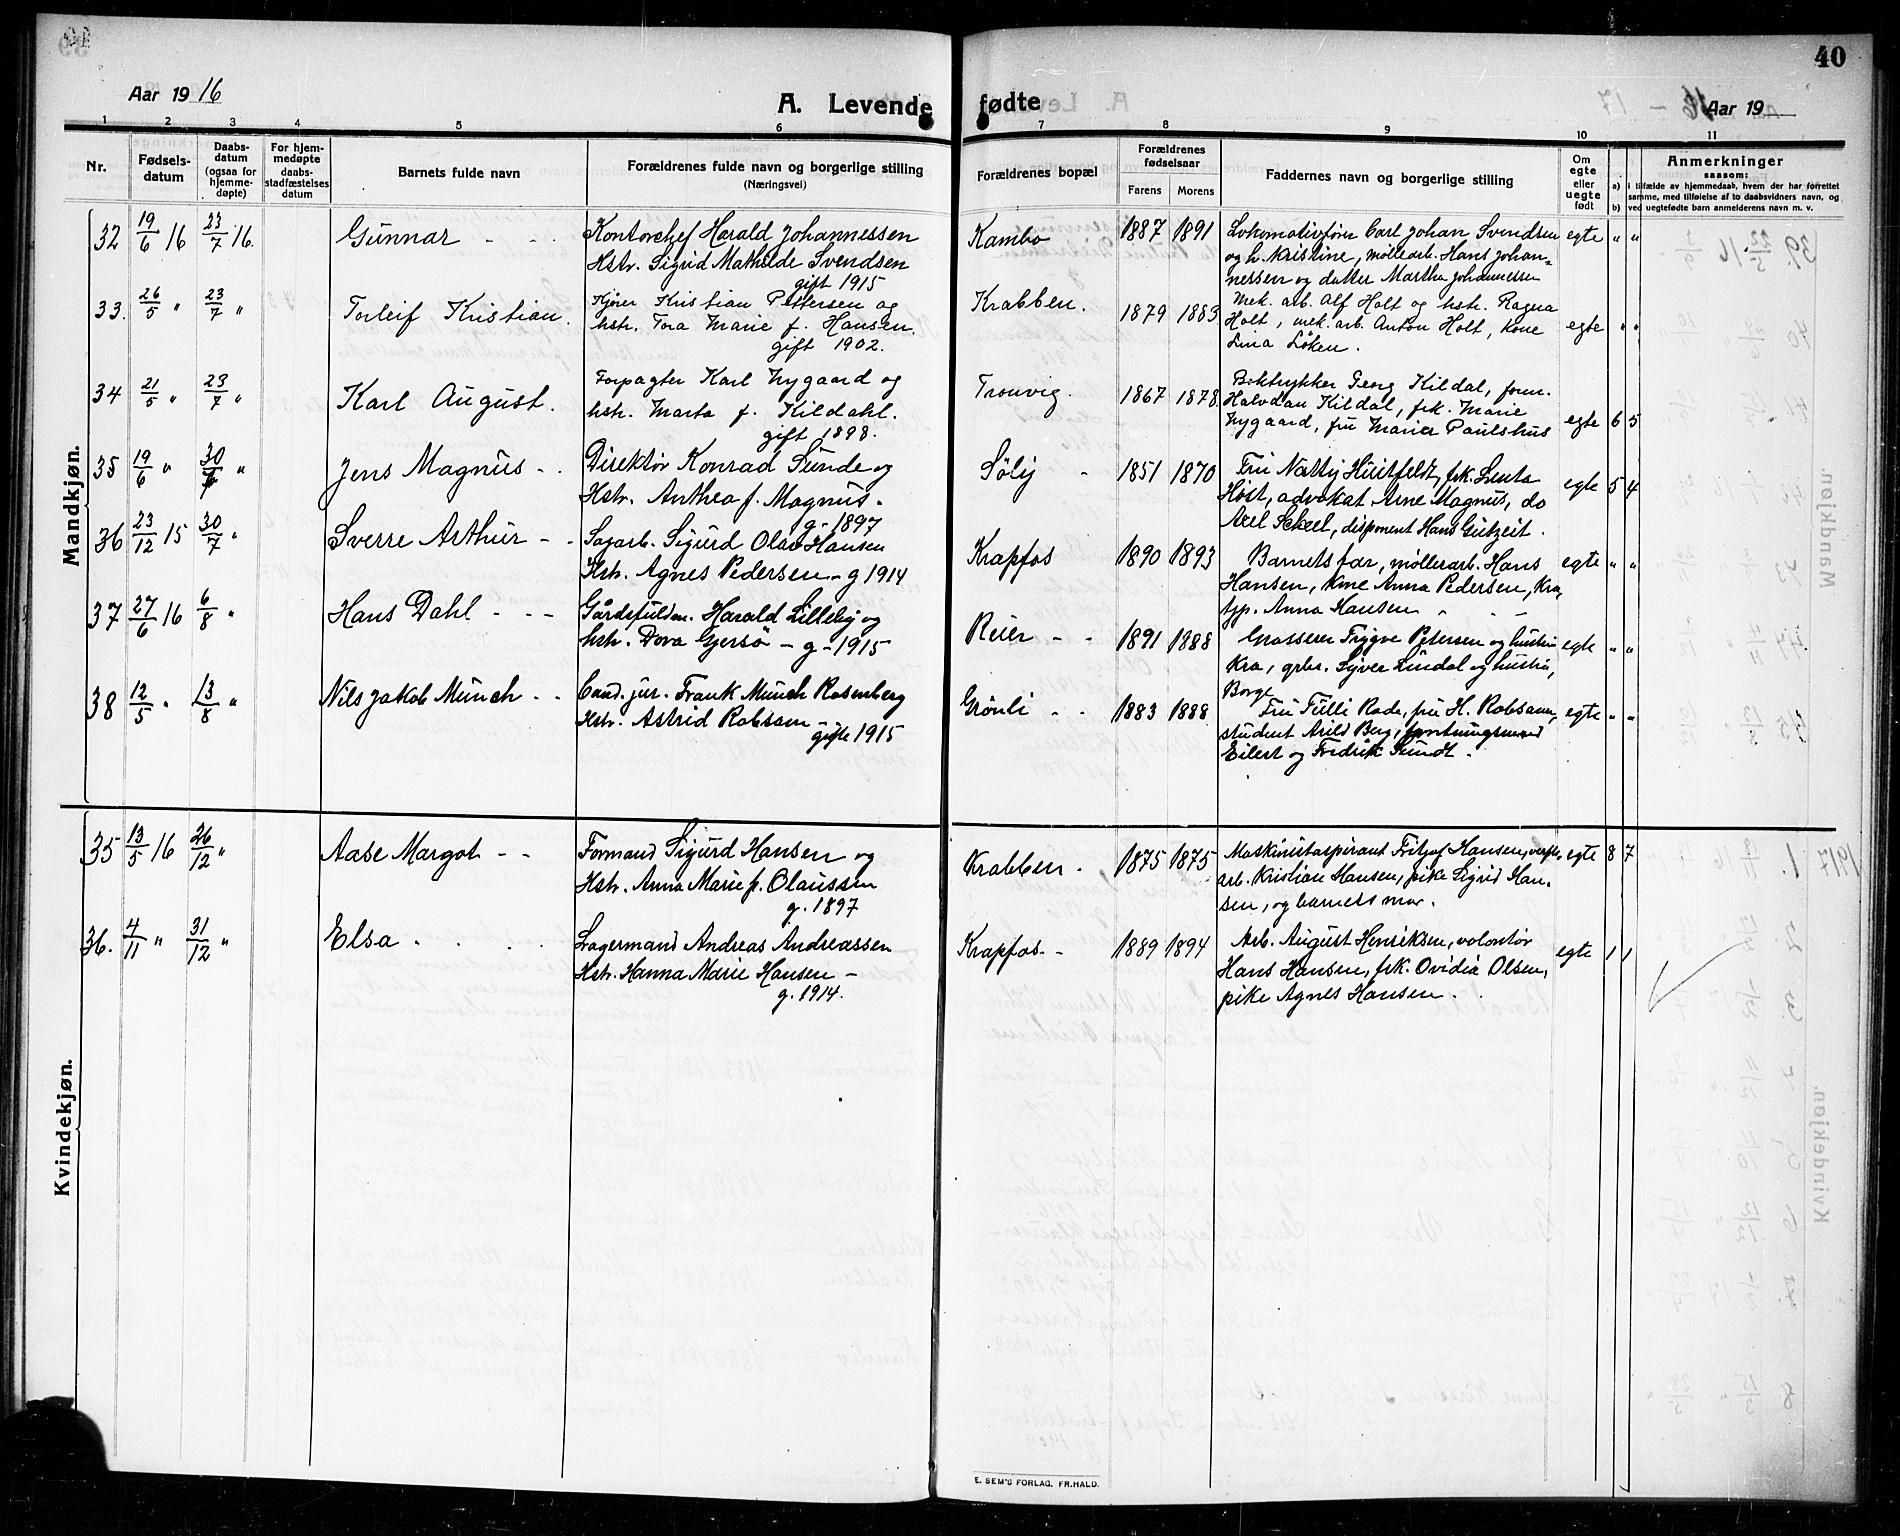 40
Aar 19 16
A. Levende fødte
Aar 19
1 2 3 4 5 6 7 8 9 10 11
Nr.
Fødselsdatum
Daabsdatum (ogsaa for hjemmedøpte)
For hjemmedøpte daabsstadfæstelses datum
Barnets fulde navn
Forældrenes fulde navn og borgerlige stilling
(Næringsvei)
Forældrenes bopæl
Forældrenes fødselsaar
Farens Morens
Faddernes navn og borgerlige stilling
Om egte eller uegte født
a)
b)
Anmerkninger
saasom:
i tilfælde av hjemmedaab, hvem der har forrettet
samme, med tilføielse af to daabsvidners navn, og
ved uegtefødte barn anmelderens navn m. v.
Mandkjøn.
32 19/6 16 23/7 16. Gunnar - - - Kontorchef Harald Johannessen
Hstr. Sigrid Mathilde Svendsen
gift 1915
Kambo 1887 1891 Lokomotivfører Carl Johan Svendsen
og h. Kristine, møllearb. Hans Johan=
nessen og datter Martha Johannessen
egte " "
33. 26/5 " 23/7 " Torleif Kristian. Kjører Kristian Pettersen og
hstr. Tora Marie f. Hansen.
gift 1902.
Krabben. 1879 1883 Mek. arb. Alf Holt og hstr. Ragna
Holt, mek. arb. Anton Holt, kone
Lina Løken.
egte " "
34 21/5 " 23/7 " Karl August. Forpagter Karl Nygaard og
hstr. Marta f. Kildahl.
gift 1898.
Tronvig. 1867 1878. Boktrykker Georg Kildal, form.
Halvdan Kildal, frk. Marie
Nygaard, fru Marie Paulshus
egte 6 5
35 19/6 " 30/7 " Jens Magnus - - Direktør Konrad Sunde og
Hstr. Anthea f. Magnus -
g - 1897
Søly - 1851 1870 Fru Natty Huitfeldt, frk.
Høst, advokat Arne Magnus, do
Axel Scheel, disponent Hans Gutzeit.
egte 5 4
36 23/12 15 30/7 " Sverre Arthur - - Sagarb. Sigurd Olav Hansen
Hstr. Agnes Pedersen - g 1914
Krapfos 1890 1893 Barnets far, møllerarb. Hans
Hansen, kone Anna Pedersen, Kra,
typ. Anna Hansen " "
egte " "
37 27/6 16 6/8 " Hans Dahl - - - Gårdsfuldm. Harald Lilleby og
hstr. Dora Gjersø - g - 1915
Reier - - 1891 1888 Grosserer Trygve Petersen og hustru
Kra, grbr. Syver Lindal og hustru,
Borge
egte " "
38 12/5 " 13/8 " Nils Jakob Münch - - Cand. jur. Frank Münch Rosenberg
Hstr. Astrid Robsam -
gifte 1915
Grønli - - 1883 1888 Fru Tulli Rode, fru H. Robsam,
student Arild Berg,
Eilert og Fredrik Sundt.
egte " "
Kvindekjøn.
35 13/5 16 26/12 " Aase Margot - - Formand Sigurd Hansen og
Hstr. Anna Marie f. Olaussen
g. 1897
Krabben - 1875 1875 Maskinistaspirant Fritjof Hansen, verfts,
arb. Kristian Hansen, pike Sigrid Han-
sen, og barnets mor.
egte 8 7
36. 4/11 " 31/12 " Elsa . . . . Lagermand Andreas Andreassen
Hstr. Hanna Marie Hansen -
g. 1914.
Krapfos - - 1889 1894 Arb. August Henriksen, volontør
Hans Hansen, frk. Ovidia Olsen,
pike Agnes Hansen.
egte 1 1
E. SEM'S FORLAG. FR.HALD.